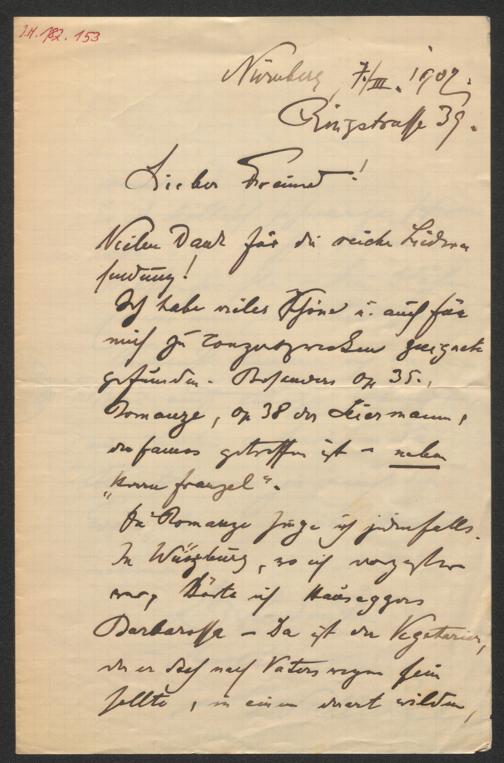 I.N. 182.153
Nürnberg, 7/III. 1902.
Ringstrasse 39.
Lieber Freund!
Vielen Dank für die reiche Lieder
sendung!
Ich habe vieles Schöne u. auch für
mich zu Conzertzwecken geeignete
gefunden. Besonders op 35.,
Romanze, op 38 der Leiermann,
der famos getroffen ist – neben
"
Die Romanze singe ich jedenfalls.
In Würzburg, wo ich vorgestern
war, hörte ich Hauseggers
Barbarossa – Da ist der Vegetarier,
der er doch nach Vaters wegen sein
sollte, in einen derart wilden,